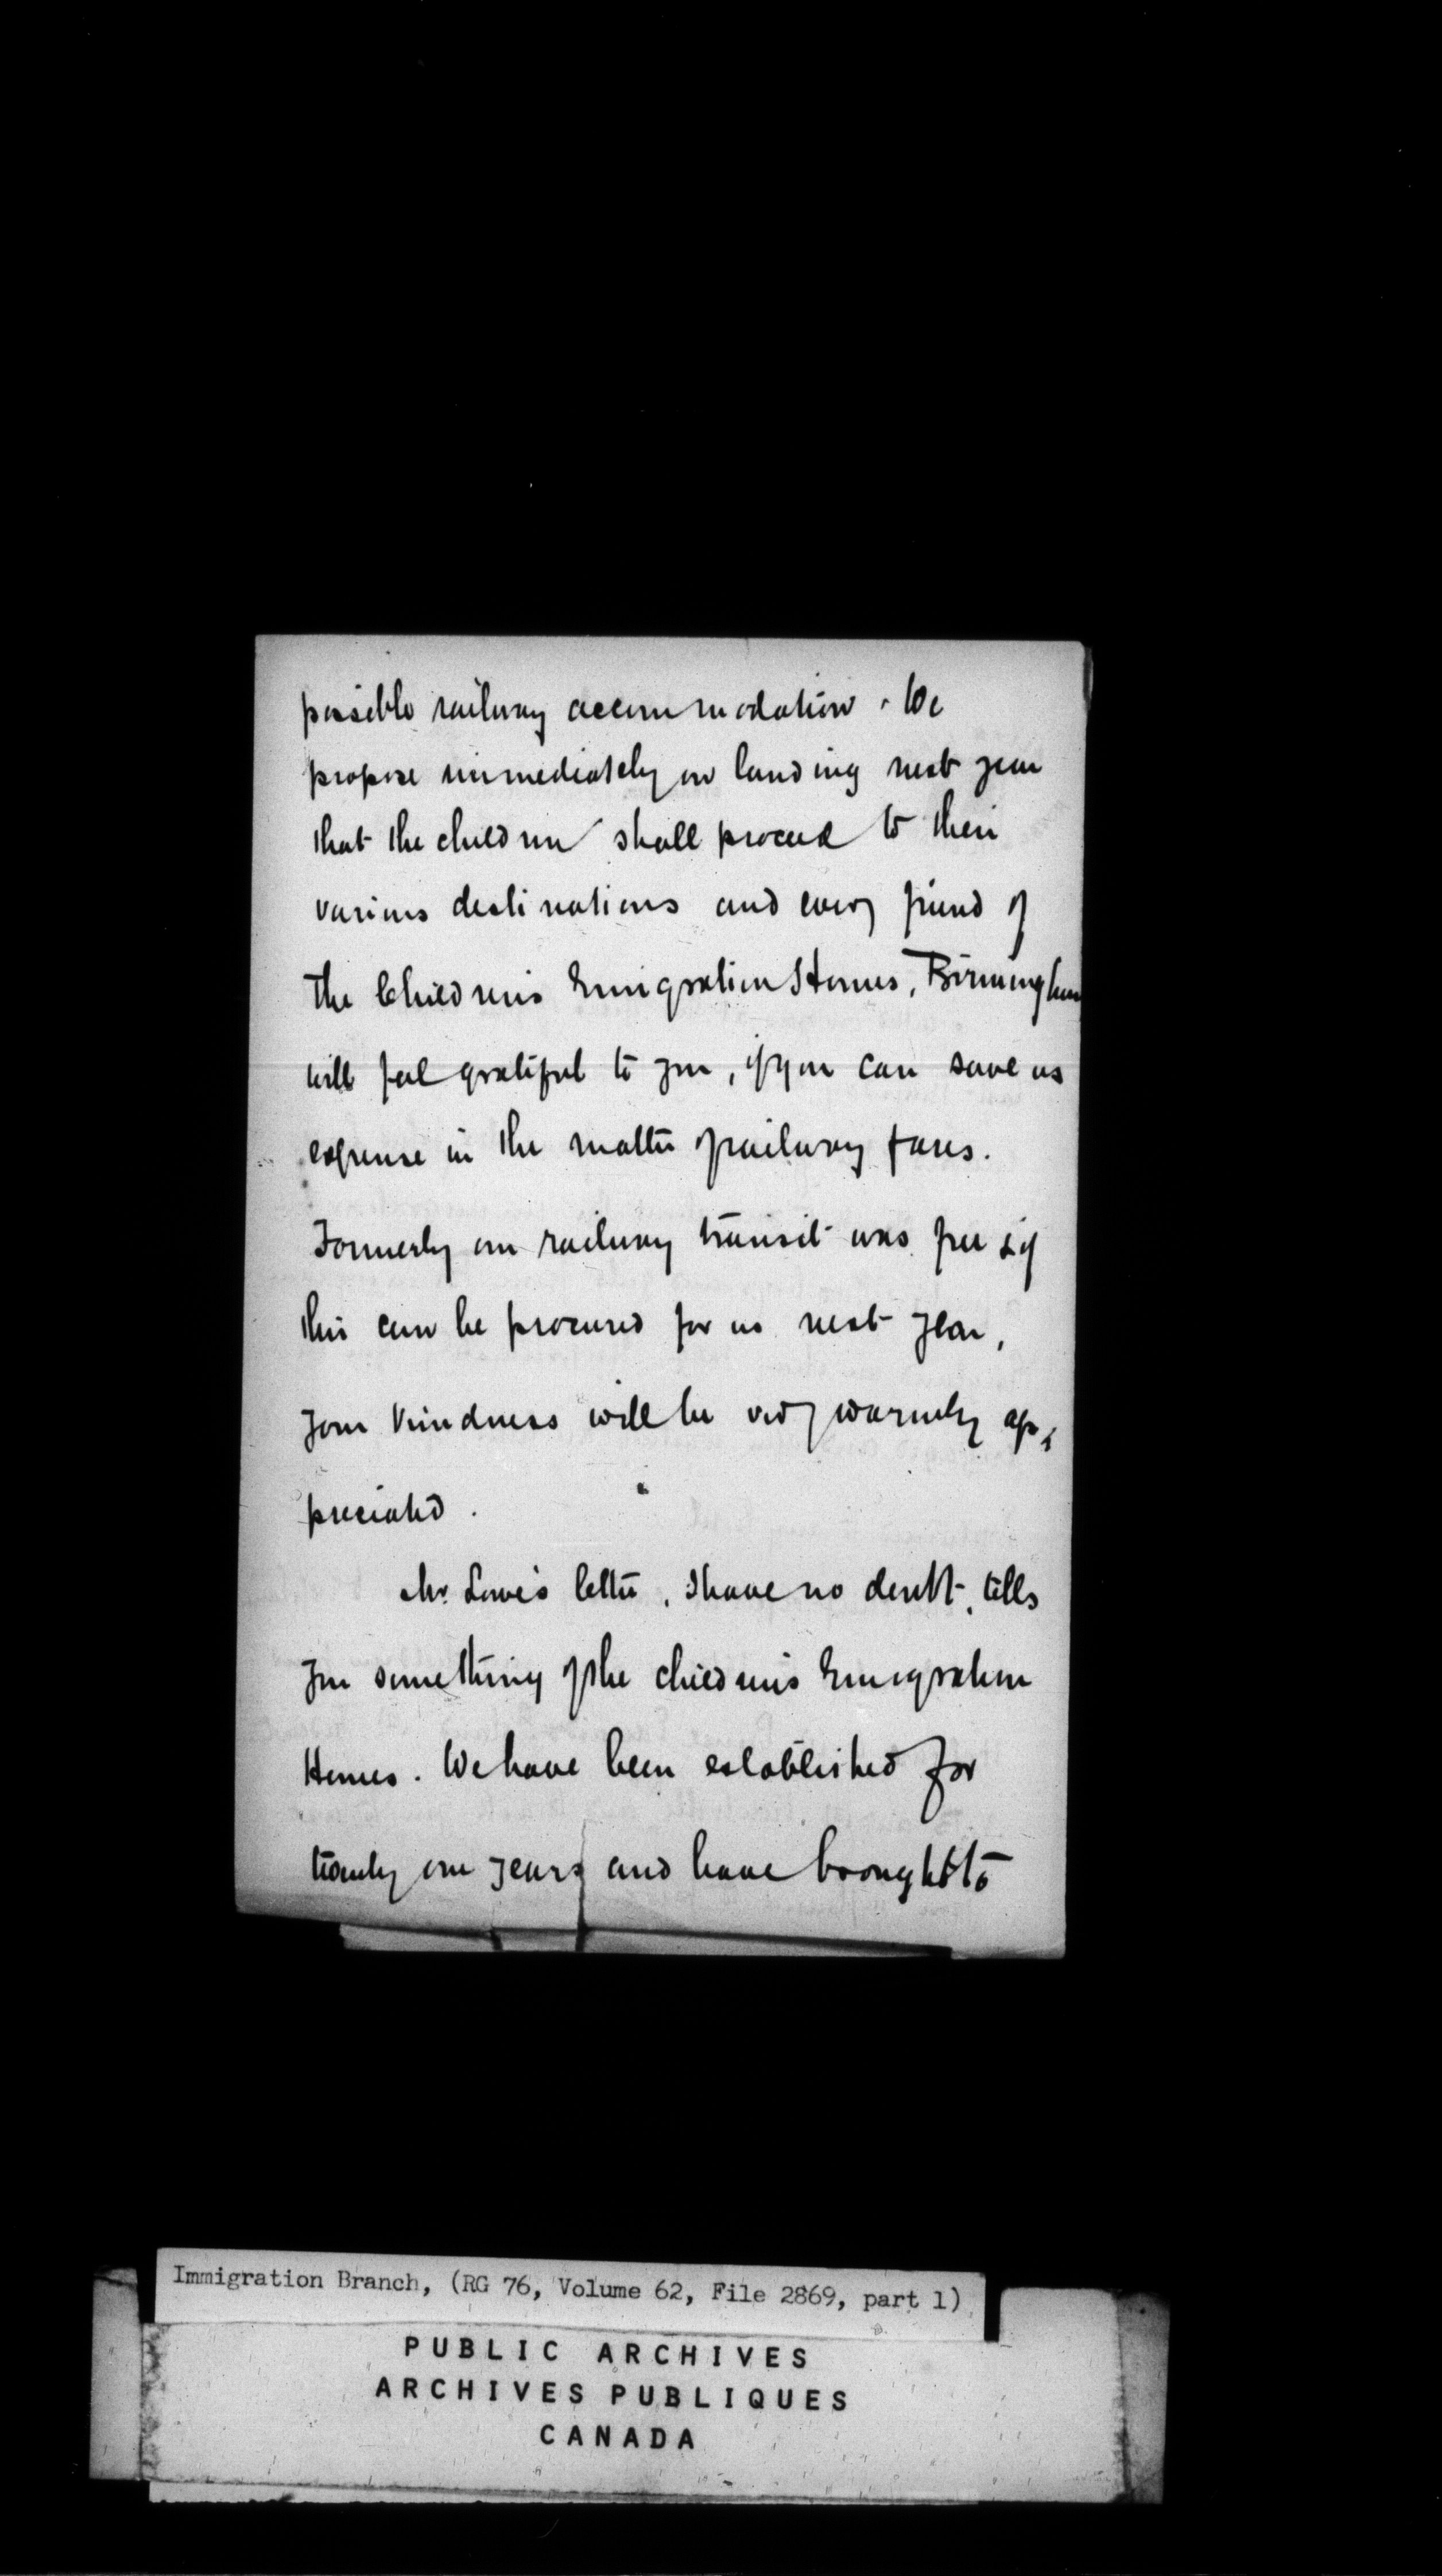 possible railway accommodation. We
propose immediately on landing next year
that the children shall proceed to their
various destinations and every friend of
the Children's Emigration Homes, Birmingham
will feel grateful to you, if you can save us
expense in the matter of railway fares.
Formerly our railway transit was free & if
this can be procured for us next year,
your kindness will be very warmly ap-
preciated.
Mr. Lowe's letter, I have no doubt, tells
you something of the children's Emigration
Homes. We have been established for
twenty one years and have brought to
Immigration Branch, (RG 76, Volume 62, File 2869, part 1)
PUBLIC ARCHIVES
ARCHIVES PUBLIQUES
CANADA